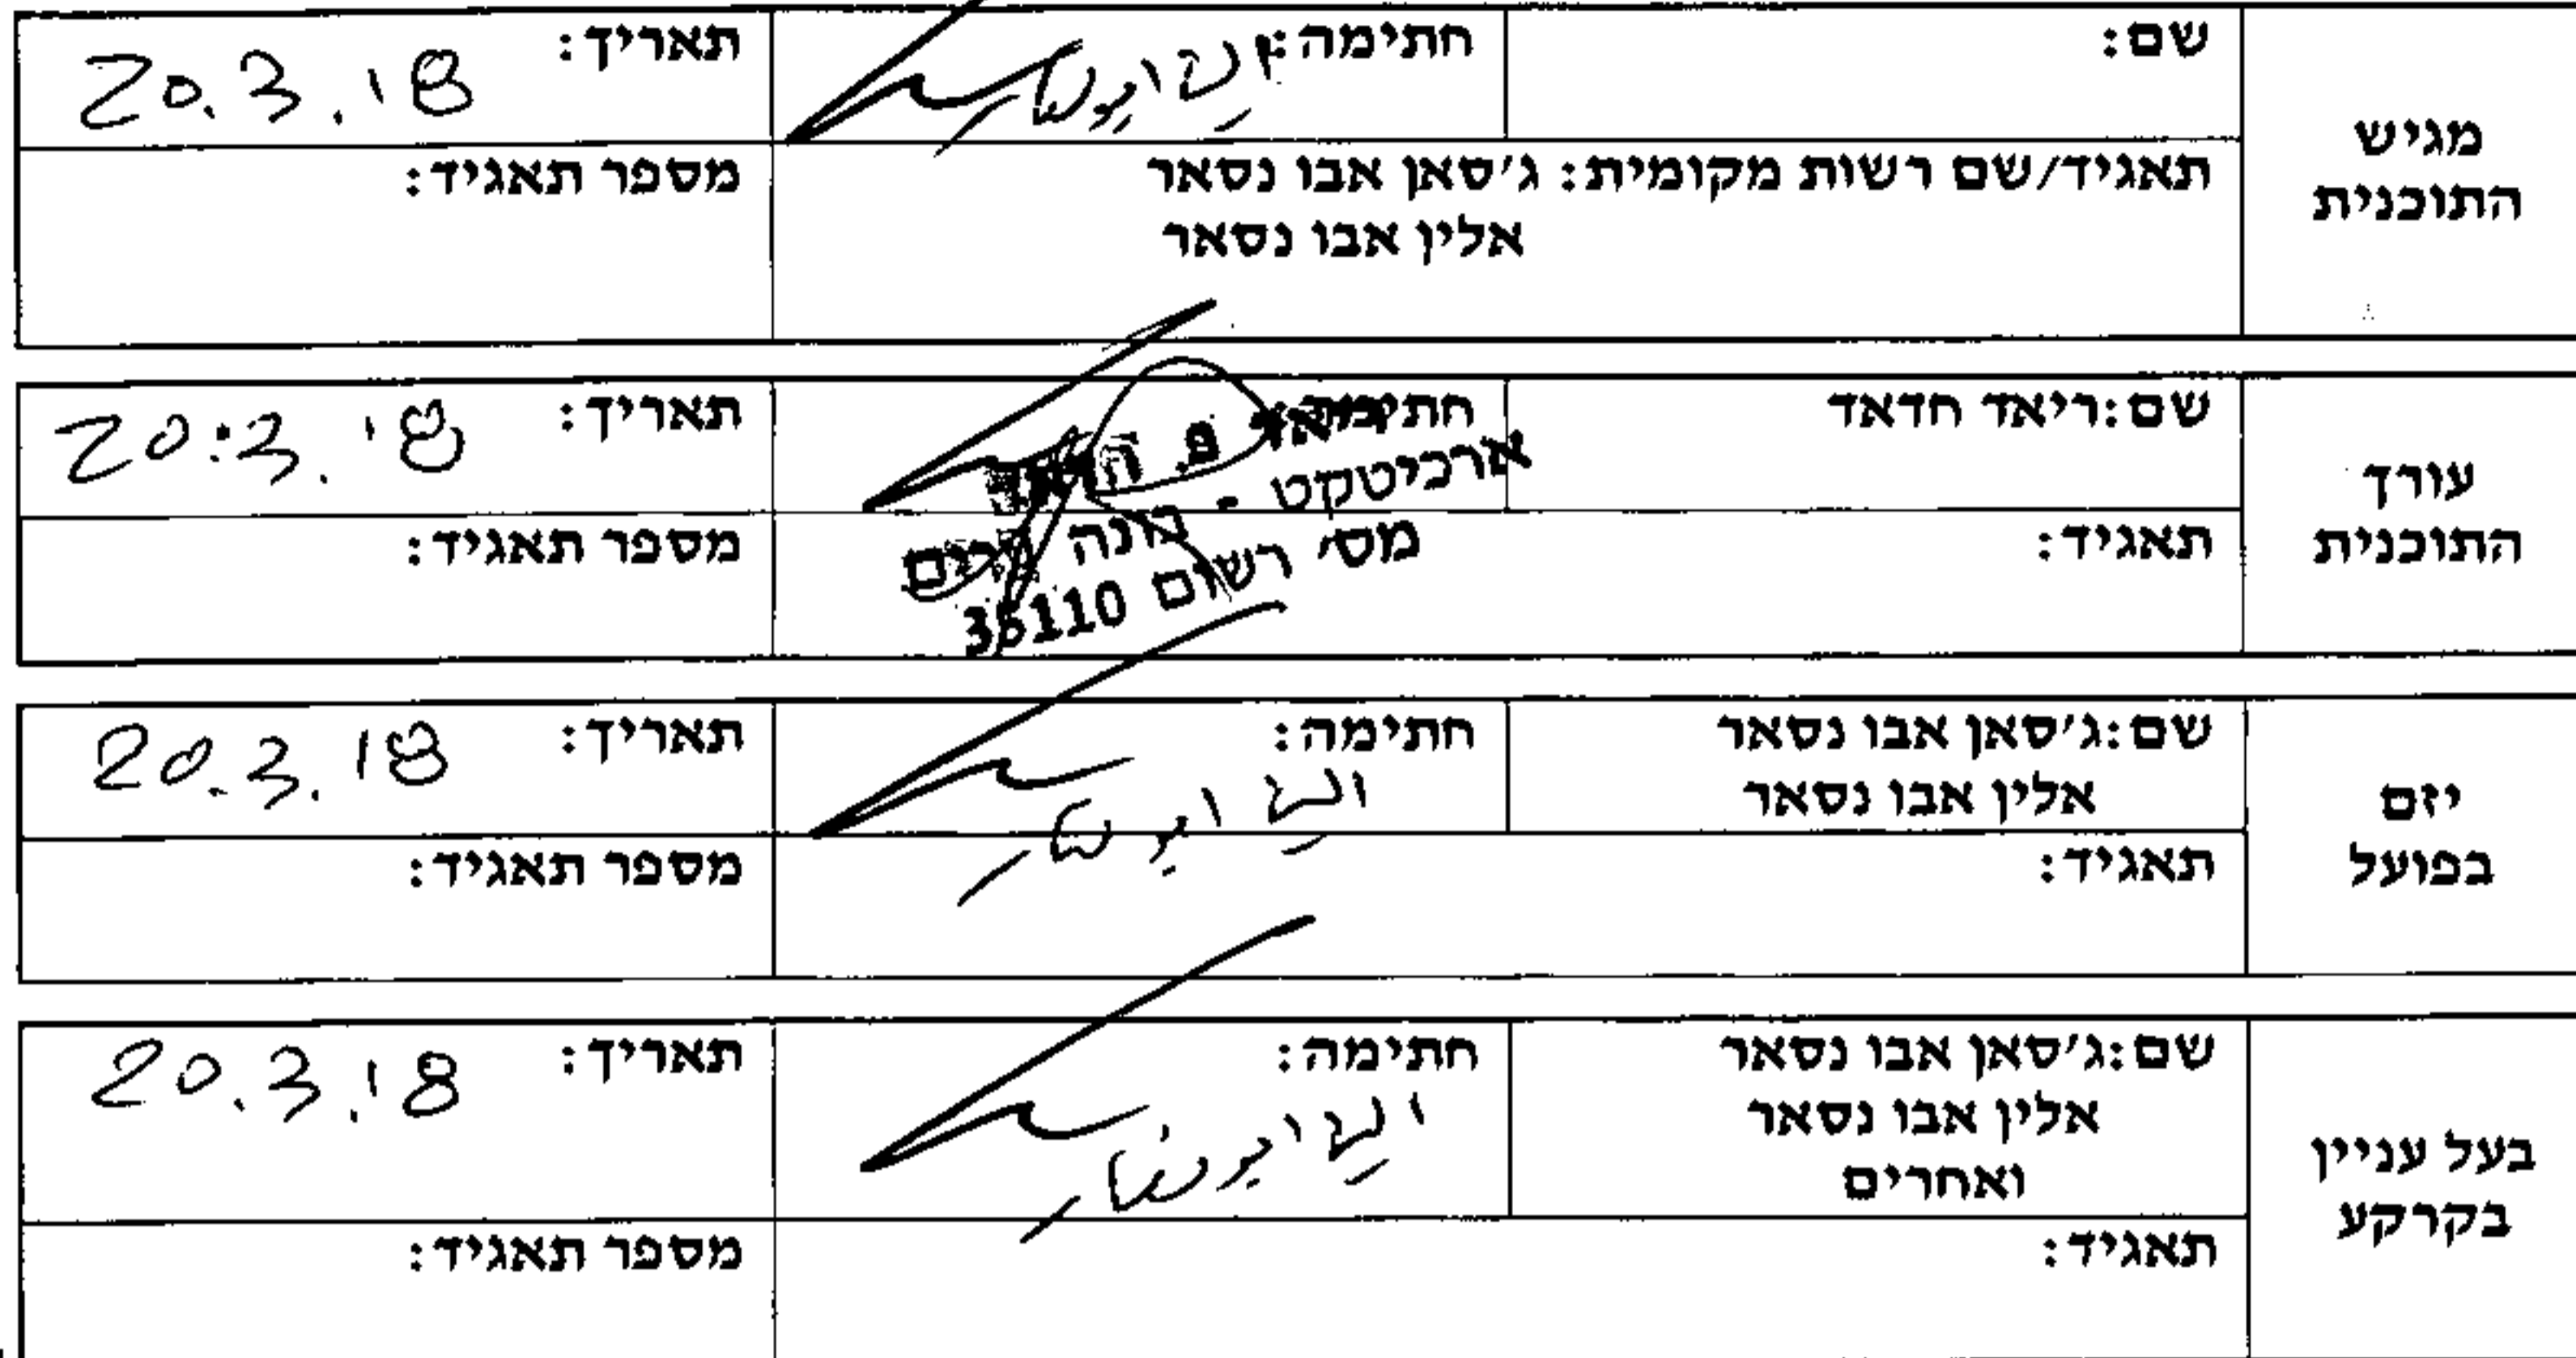 מגיש
התוכנית
שם:
חתימה:
תאריך: 20.3.18
תאגיד/שם רשות מקומית: ג'סאן אבו נסאר
אלין אבו נסאר
מספר תאגיד:
עורך
התוכנית
שם:ריאד חדאד
חתימה:
ארכיטקט - בונה ערים
מס' רשום 35110
תאריך: 20.3.18
תאגיד:
מספר תאגיד:
יזם
בפועל
שם:ג'סאן אבו נסאר
אלין אבו נסאר
חתימה:
תאריך: 20.3.18
תאגיד:
מספר תאגיד:
בעל עניין
בקרקע
שם:ג'סאן אבו נסאר
אלין אבו נסאר
ואחרים
חתימה:
תאריך: 20.3.18
תאגיד:
מספר תאגיד: